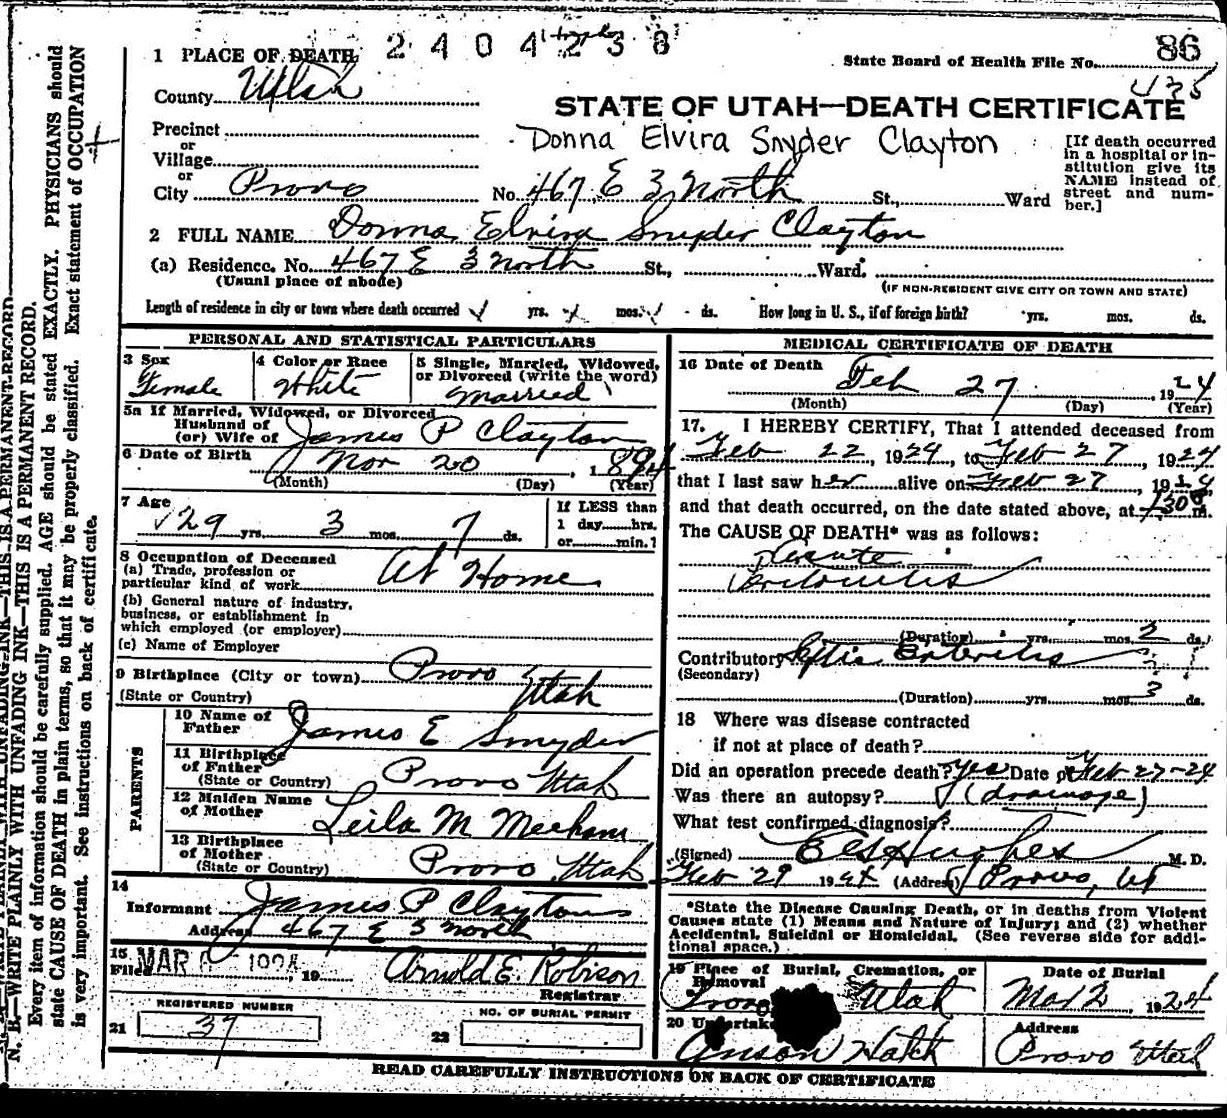 2404238
86
1 PLACE OF DEATH
State Board of Health File No.
435
County Utah
STATE OF UTAH—DEATH CERTIFICATE
Precinct
Donna Elvira Snyder Clayton
or
Village
or
City Provo No. 467 E 3 North St., Ward
[If death occurred
in a hospital or in-
stitution give its
NAME instead of
street and num-
ber.]
2 FULL NAME Donna Elvira Snyder Clayton
(a) Residence. No. 467 E 3 North St., Ward.
(Usual place of abode)
(IF NON-RESIDENT GIVE CITY OR TOWN AND STATE)
Length of residence in city or town where death occurred yrs. mos. ds. How long in U. S., if of foreign birth? yrs. mos. ds.
PERSONAL AND STATISTICAL PARTICULARS
3 Sex
Female
4 Color or Race
White
5 Single, Married, Widowed,
or Divorced (write the word)
Married
5a If Married, Widowed, or Divorced
Husband of
(or) Wife of James P Clayton
6 Date of Birth Nov 20, 1894
(Month) (Day) (Year)
7 Age
29 yrs. 3 mos. 7 ds.
If LESS than
1 day......hrs.
or......min.?
8 Occupation of Deceased
(a) Trade, profession or
particular kind of work At Home
(b) General nature of industry,
business, or establishment in
which employed (or employer)
(c) Name of Employer
9 Birthplace (City or town) Provo
(State or Country) Utah
PARENTS
10 Name of
Father James E Snyder
11 Birthplace
of Father
(State or Country) Provo Utah
12 Maiden Name
of Mother Leila M Meecham
13 Birthplace
of Mother
(State or Country) Provo Utah
14
Informant James P Clayton
Address 467 E 3 North
15
Filed MAR 1924, 19 Arnold E. Robison
Registrar
REGISTERED NUMBER
21 37
NO. OF BURIAL PERMIT
22
MEDICAL CERTIFICATE OF DEATH
16 Date of Death
Feb 27 1924
(Month) (Day) (Year)
17. I HEREBY CERTIFY, That I attended deceased from
Feb 22, 1924, to Feb 27, 1924
that I last saw her alive on Feb 27, 1924
and that death occurred, on the date stated above, at 130 m.
The CAUSE OF DEATH* was as follows:
Acute
Peritonitis
(Duration) yrs. mos. 2 ds.
Contributory Septic Enteritis
(Secondary)
(Duration) yrs. mos. 3 ds.
18 Where was disease contracted
if not at place of death?
Did an operation precede death? Yes Date of Feb 27-24
Was there an autopsy? (drainage)
What test confirmed diagnosis?
(Signed) Hughes M. D.
Feb 29 1924 (Address) Provo, Ut
*State the Disease Causing Death, or in deaths from Violent
Causes state (1) Means and Nature of Injury; and (2) whether
Accidental, Suicidal or Homicidal. (See reverse side for addi-
tional space.)
19 Place of Burial, Cremation, or
Removal
Provo Utah
Date of Burial
Mar 2 1924
20 Undertaker
Anson Hatch
Address
Provo Utah
READ CAREFULLY INSTRUCTIONS ON BACK OF CERTIFICATE
N. B.—WRITE PLAINLY WITH UNFADING INK—THIS IS A PERMANENT RECORD.
Every item of information should be carefully supplied. AGE should be stated EXACTLY. PHYSICIANS should
state CAUSE OF DEATH in plain terms, so that it may be properly classified. Exact statement of OCCUPATION
is very important. See instructions on back of certificate.